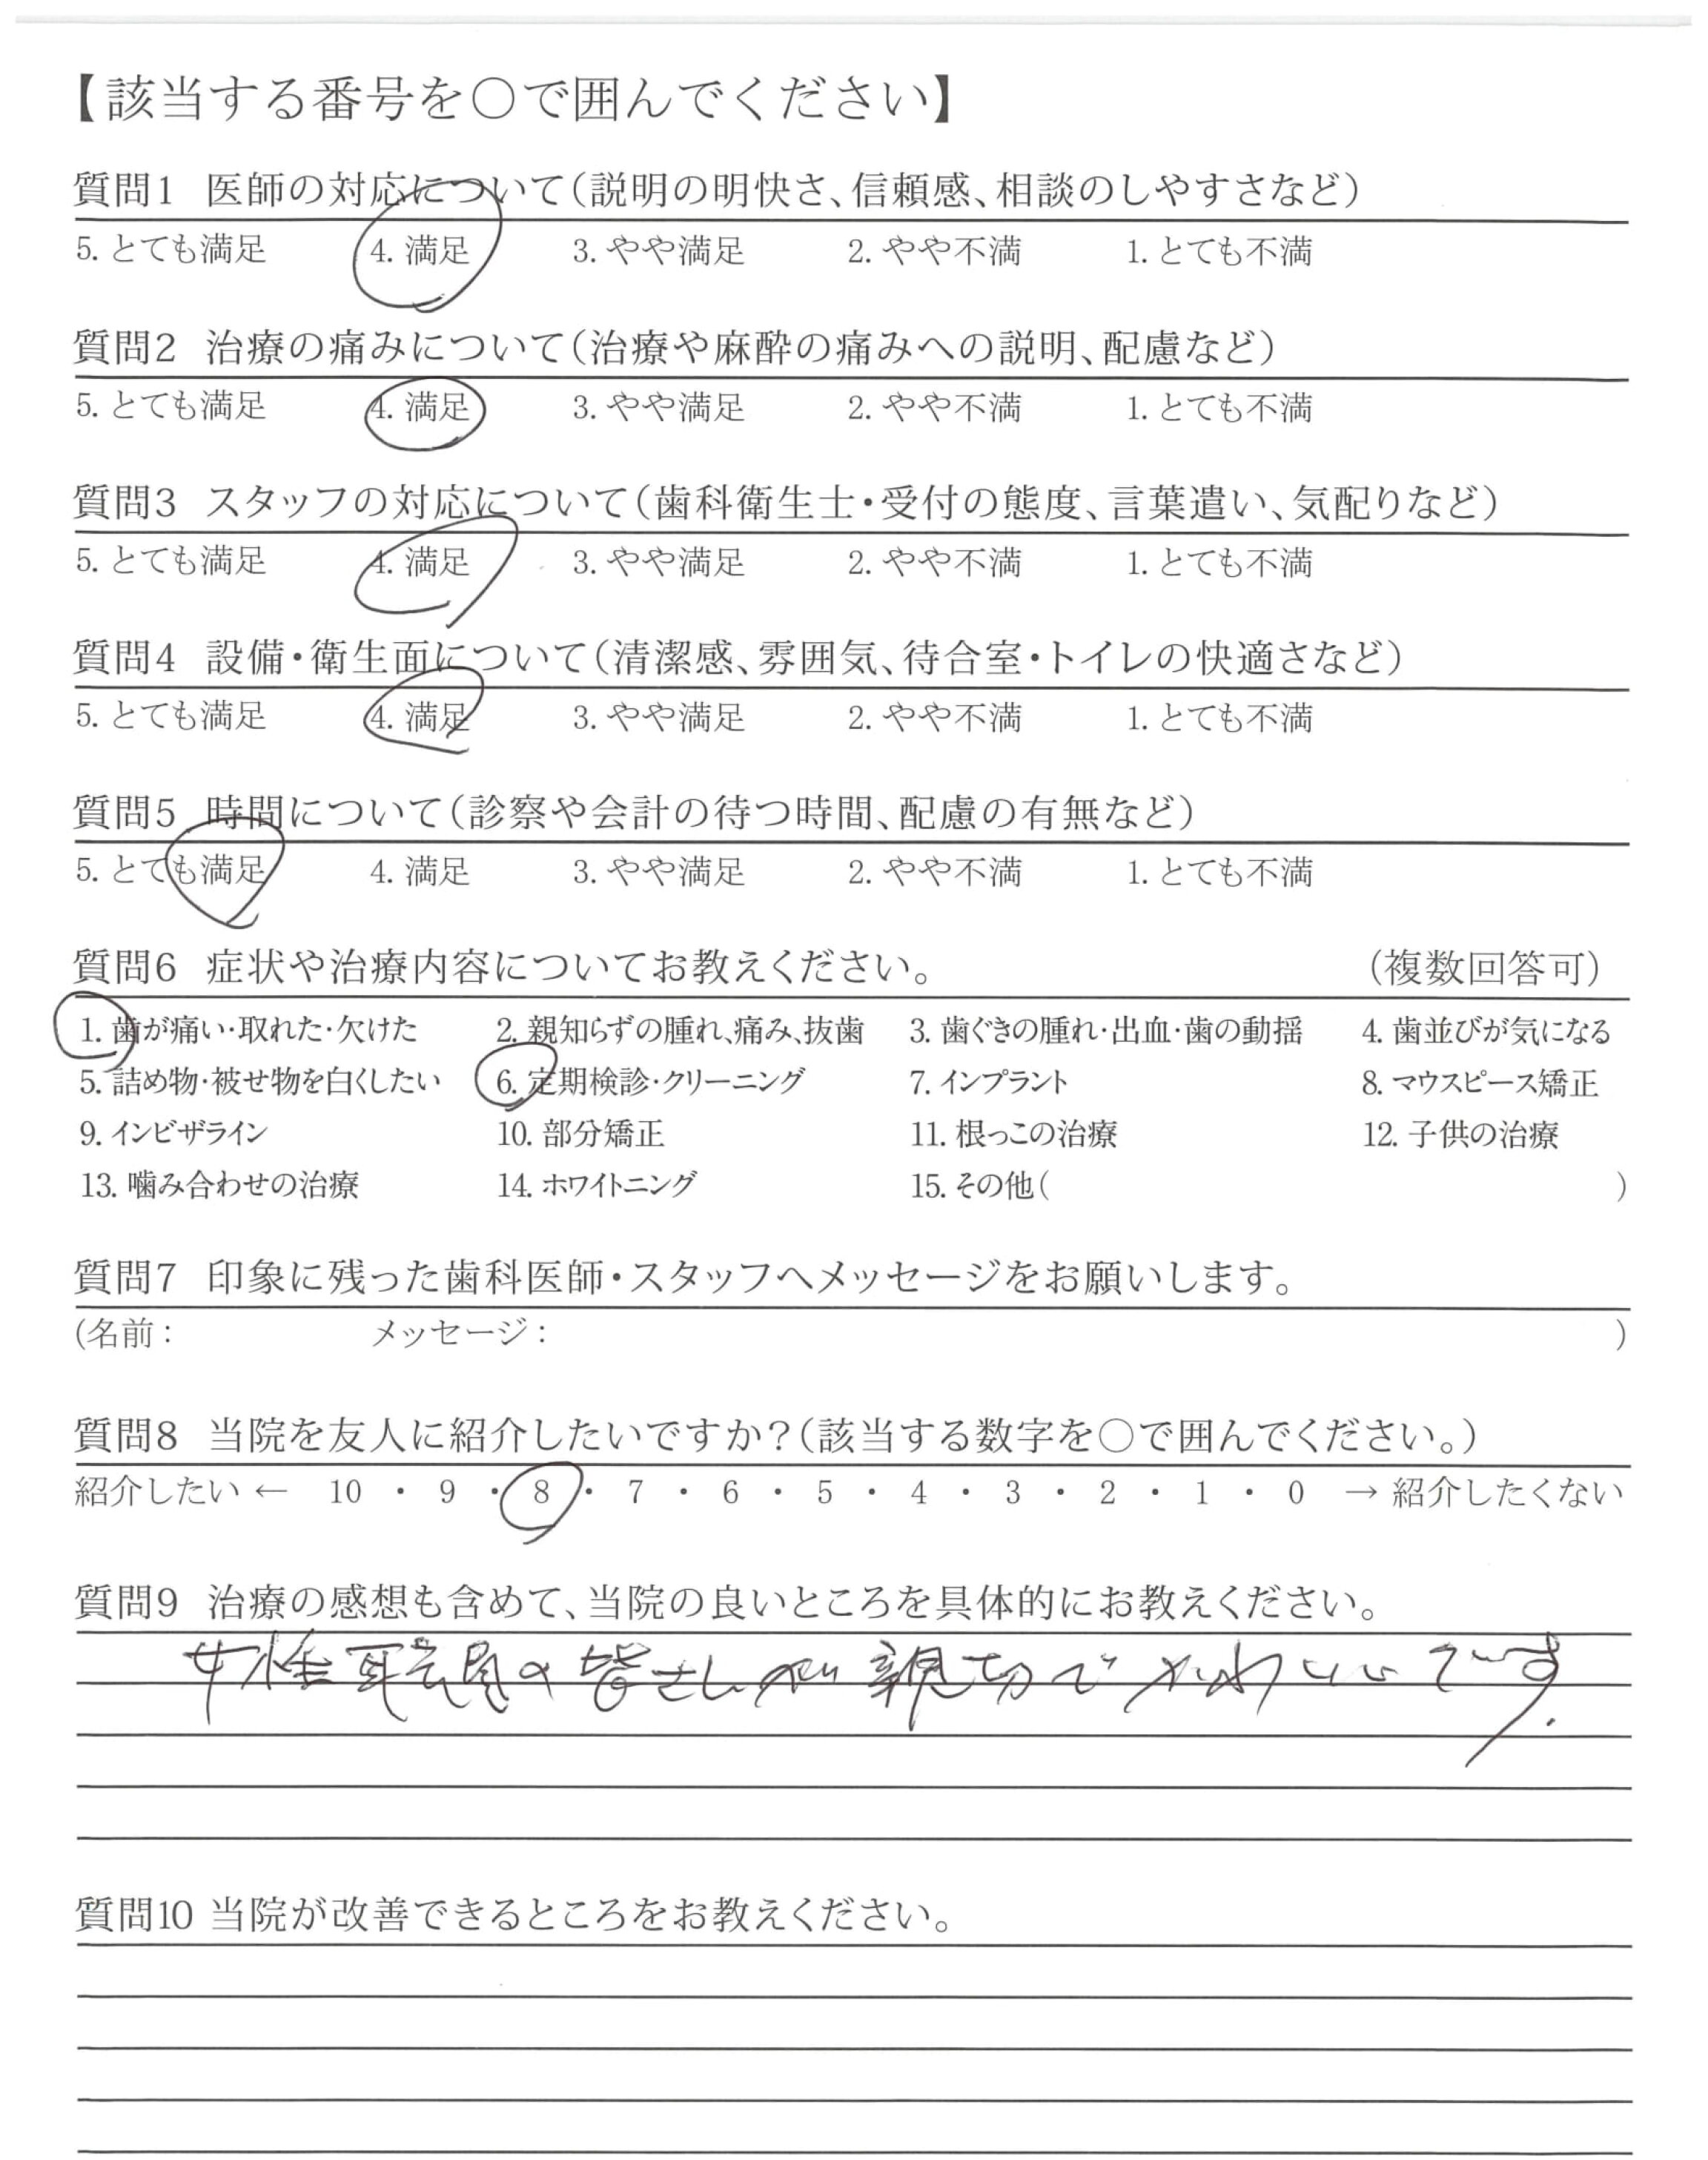 【該当する番号を○で囲んでください】
質問1 医師の対応について(説明の明快さ、信頼感、相談のしやすさなど)
5. とても満足 4. 満足 3. やや満足 2. やや不満 1. とても不満
質問2 治療の痛みについて(治療や麻酔の痛みへの説明、配慮など)
5. とても満足 4. 満足 3. やや満足 2. やや不満 1. とても不満
質問3 スタッフの対応について(歯科衛生士・受付の態度、言葉遣い、気配りなど)
5. とても満足 4. 満足 3. やや満足 2. やや不満 1. とても不満
質問4 設備・衛生面について(清潔感、雰囲気、待合室・トイレの快適さなど)
5. とても満足 4. 満足 3. やや満足 2. やや不満 1. とても不満
質問5 時間について(診察や会計の待つ時間、配慮の有無など)
5. とても満足 4. 満足 3. やや満足 2. やや不満 1. とても不満
質問6 症状や治療内容についてお教えください。 (複数回答可)
1. 歯が痛い・取れた・欠けた 2. 親知らずの腫れ、痛み、抜歯 3. 歯ぐきの腫れ・出血・歯の動揺 4. 歯並びが気になる
5. 詰め物・被せ物を白くしたい 6. 定期検診・クリーニング 7. インプラント 8. マウスピース矯正
9. インビザライン 10. 部分矯正 11. 根っこの治療 12. 子供の治療
13. 噛み合わせの治療 14. ホワイトニング 15. その他( )
質問7 印象に残った歯科医師・スタッフへメッセージをお願いします。
(名前: メッセージ: )
質問8 当院を友人に紹介したいですか?(該当する数字を○で囲んでください。)
紹介したい ← 10 ・ 9 ・ 8 ・ 7 ・ 6 ・ 5 ・ 4 ・ 3 ・ 2 ・ 1 ・ 0 → 紹介したくない
質問9 治療の感想も含めて、当院の良いところを具体的にお教えください。
女性 の皆さんが親切でかわいいです.
質問10 当院が改善できるところをお教えください。